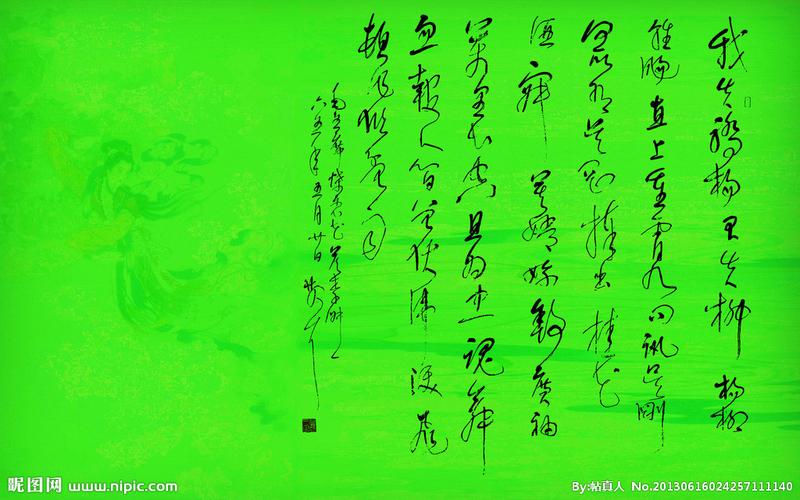 我失骄杨君失柳 杨柳
轻飏直上重霄九 问讯吴刚
何所有 吴刚捧出桂花
酒 寂寞嫦娥舒广袖
万里长空且为忠魂舞
忽报人间曾伏虎 泪飞
顿作倾盆雨
毛主席蝶恋花答李淑一
六五年五月廿日
昵图网 www.nipic.com
By:帖真人 No.20130616024257111140